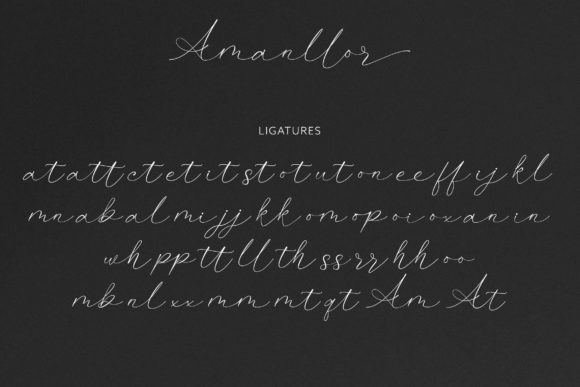 Amanllor
LIGATURES
at att ct et it st ot ut on ee ff ij kl
mn ab al mi jj kk om op oi ox an in
wh pp tt ll th ss rr hh oo
mb nl xx mm mt qt Am At